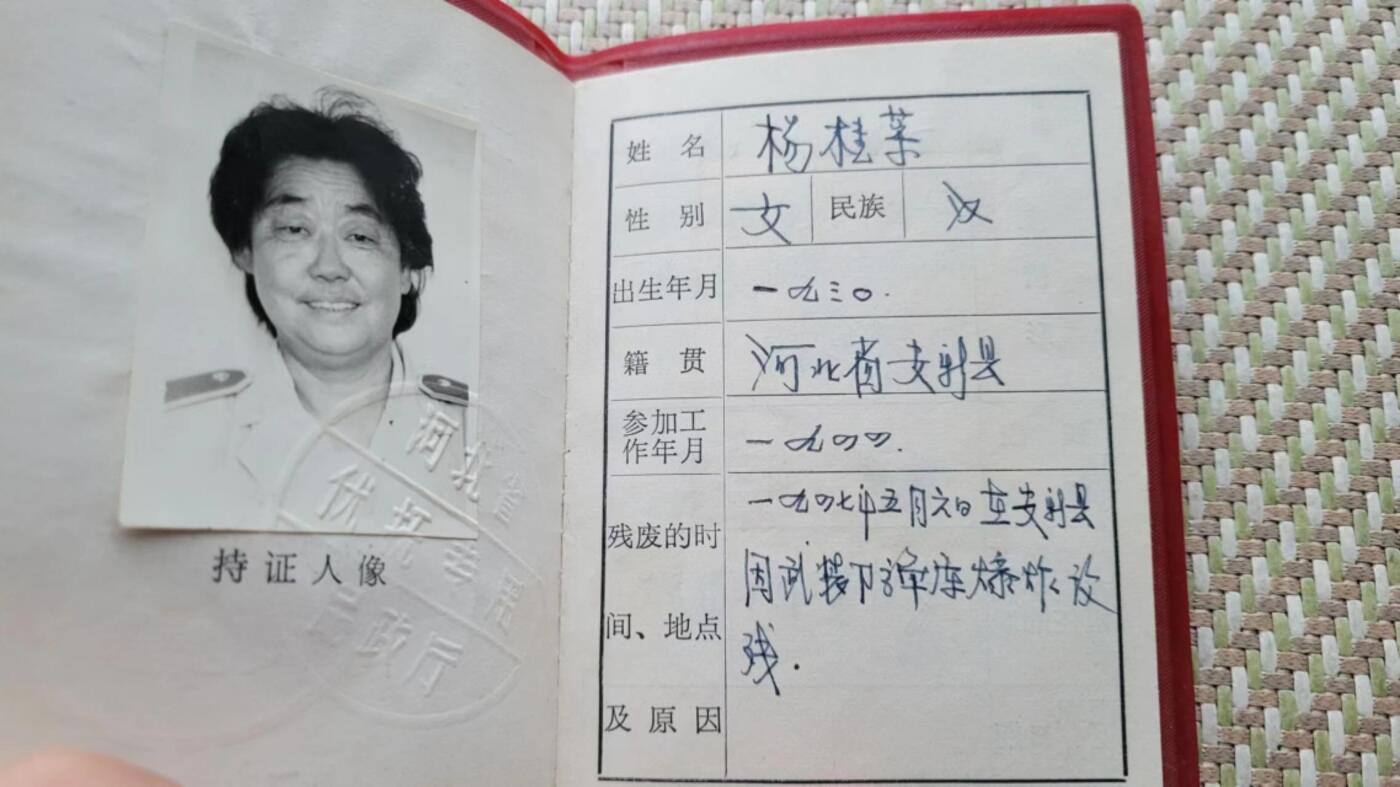 持证人像
河北省
伏抚专用
民政厅
姓名 杨桂荣
性别 女 民族 汉
出生年月 一九三〇.
籍贯 河北省 县
参加工作年月 一九四四.
残废的时间、地点及原因
一九四七年五月六日在 县
因武装 部弹库爆炸致
残.